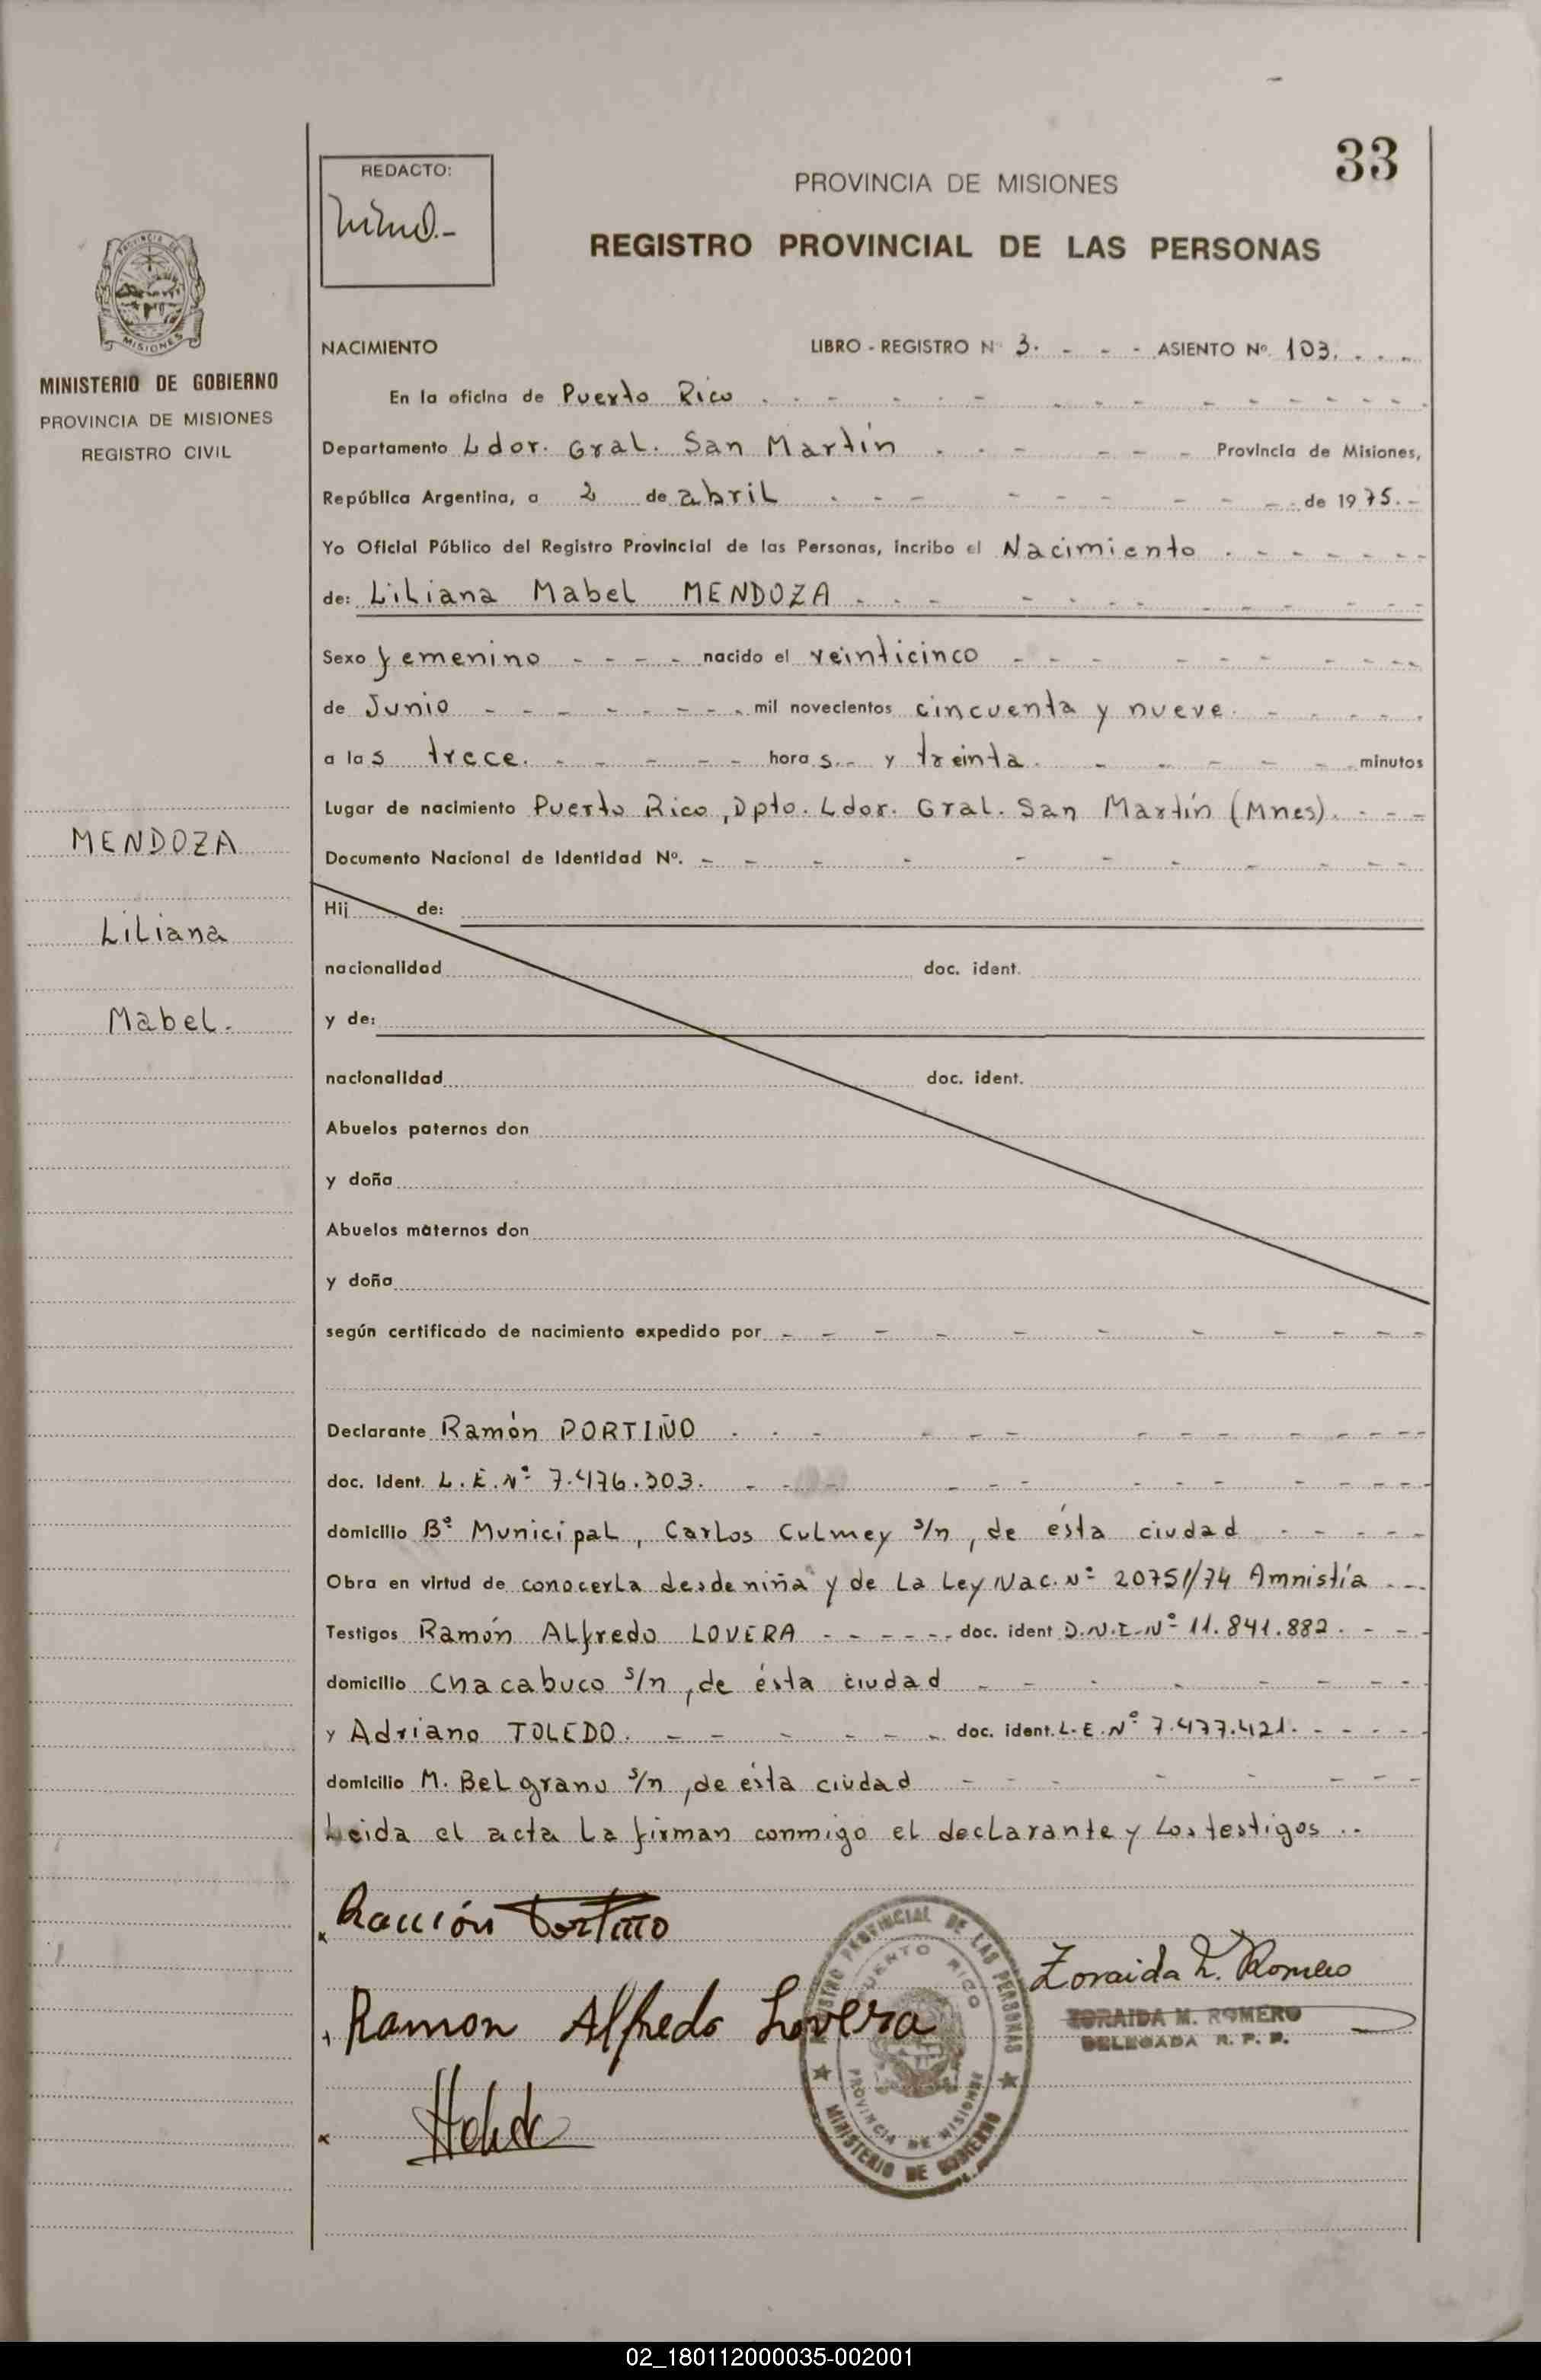 33
REDACTO:
PROVINCIA DE MISIONES
REGISTRO PROVINCIAL DE LAS PERSONAS
MISIONES
MINISTERIO DE GOBIERNO
PROVINCIA DE MISIONES
REGISTRO CIVIL
MENDOZA
Liliana
Mabel.-
NACIMIENTO LIBRO - REGISTRO Nº 3. - - - ASIENTO Nº 103. - - -
En la oficina de Puerto Rico
Departamento Ldor. Gral. San Martín - - - Provincia de Misiones,
República Argentina, a 2 de abril - - - de 1975.-
Yo Oficial Público del Registro Provincial de las Personas, incribo el Nacimiento
de: Liliana Mabel MENDOZA
Sexo femenino - - - - nacido el veinticinco
de Junio - - - mil novecientos cincuenta y nueve.
a las trece. - - - horas.- y treinta. - - - minutos
Lugar de nacimiento Puerto Rico, Dpto. Ldor. Gral. San Martín (Mnes). - - -
Documento Nacional de Identidad Nº. - - -
Hij de:
nacionalidad doc. ident.
y de:
nacionalidad doc. ident.
Abuelos paternos don
y doña
Abuelos maternos don
y doña
según certificado de nacimiento expedido por - - -
Declarante Ramón PORTIÑO
doc. Ident. L.E.Nº 7.476.303.
domicilio Bº Municipal, Carlos Culmey s/n, de ésta ciudad
Obra en virtud de conocerla desde niña y de La Ley Nac. Nº 20751/74 Amnistía
Testigos Ramón Alfredo LOVERA - - - doc. ident D.N.I.Nº 11.841.882.
domicilio Chacabuco s/n, de ésta ciudad
y Adriano TOLEDO. - - - doc. ident. L.E.Nº 7.477.421.
domicilio M. Belgrano s/n, de ésta ciudad
Leida el acta la firman conmigo el declarante y los testigos ..
Ramon Alfredo Lovera
Zoraida M. Romero
ZORAIDA M. ROMERO
DELEGADA R. P. P.
REGISTRO PROVINCIAL DE LAS PERSONAS
PUERTO RICO
PROVINCIA DE MISIONES
MINISTERIO DE GOBIERNO
02_180112000035-002001